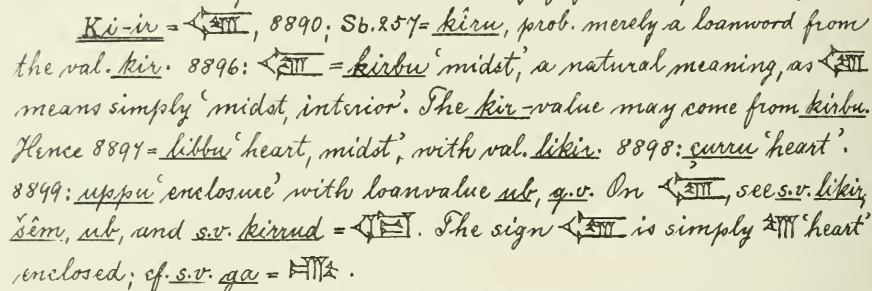 Ki-ir = , 8890; Sb. 257 = kîru, prob. merely a loanword from
the val. kir. 8896: = kirbu 'midst', a natural meaning, as
means simply 'midst, interior'. The kir-value may come from kirbu.
Hence 8897 = libbu 'heart, midst', with val. likir. 8898: çurru 'heart'.
8899: uppu 'enclosure' with loanvalue ub, q.v. On , see s.v. likir,
šêm, ub, and s.v. kirrud = . The sign is simply 'heart'
enclosed; cf. s.v. ga = .